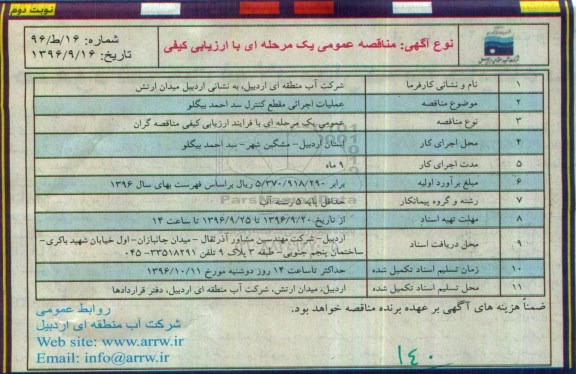 نوبت دوم
نوع آگهی: مناقصه عمومی یک مرحله ای با ارزیابی کیفی
شماره: ۱۶/ط/۹۶
تاریخ: ۱۳۹۶/۹/۱۶
۱ نام و نشانی کارفرما شرکت آب منطقه ای اردبیل، به نشانی اردبیل میدان ارتش
۲ موضوع مناقصه عملیات اجرائی مقطع کنترل سد احمد بیگلو
۳ نوع مناقصه عمومی یک مرحله ای با فرایند ارزیابی کیفی مناقصه گران
۴ محل اجرای کار استان اردبیل- مشگین شهر- سد احمد بیگلو
۵ مدت اجرای کار ۹ ماه
۶ مبلغ برآورد اولیه برابر ۵/۳۷۰/۹۱۸/۲۹۰ ریال براساس فهرست بهای سال ۱۳۹۶
۷ رشته و گروه پیمانکار حداقل پایه ۵ رشته آب
۸ مهلت تهیه اسناد از تاریخ ۱۳۹۶/۹/۲۰ تا ۱۳۹۶/۹/۲۵ تا ساعت ۱۴
۹ محل دریافت اسناد اردبیل- شرکت مهندسین مشاور آذرثقال - میدان جانبازان- اول خیابان شهید باکری-
ساختمان پنجم جنوبی- طبقه ۳ پلاک ۹ تلفن ۳۳۵۱۸۲۹۱-۰۴۵
۱۰ زمان تسلیم اسناد تکمیل شده حداکثر تاساعت ۱۴ روز دوشنبه مورخ ۱۳۹۶/۱۰/۱۱
۱۱ محل تسلیم اسناد تکمیل شده اردبیل، میدان ارتش، شرکت آب منطقه ای اردبیل، دفتر قراردادها
ضمناً هزینه های آگهی بر عهده برنده مناقصه خواهد بود.
روابط عمومی
شرکت آب منطقه ای اردبیل
Web site: www.arrw.ir
Email: info@arrw.ir
۱۴۰